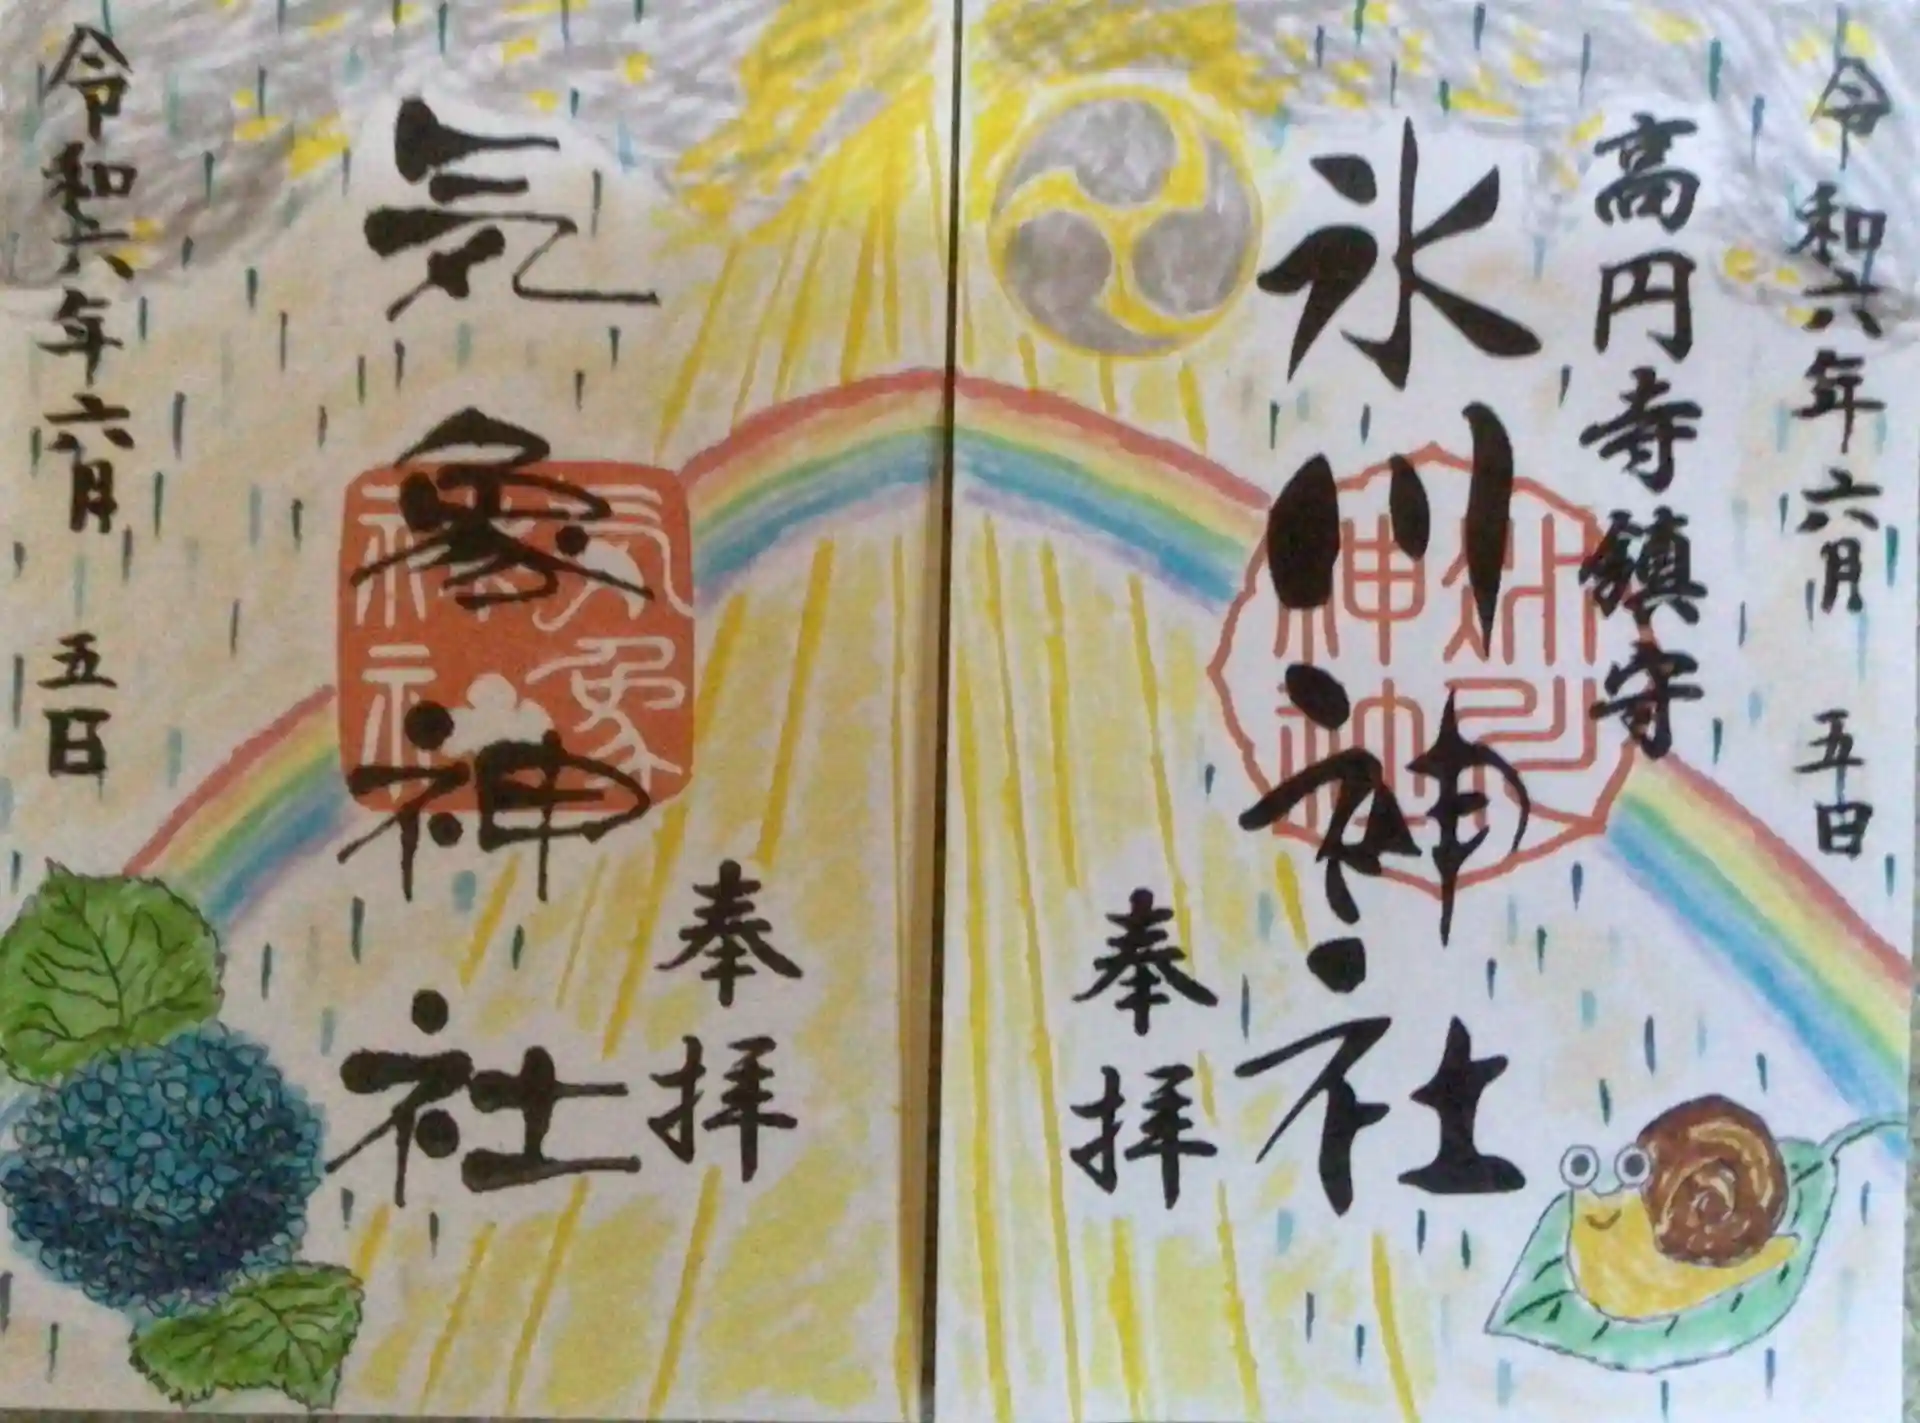 令和六年六月 五日
高円寺鎮守
氷川神社
氷川神社
奉拝
奉拝
気象神社
気象神社
令和六年六月 五日